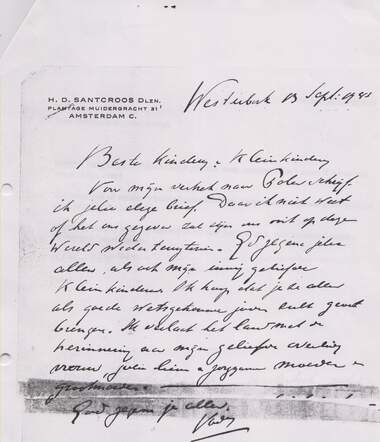 H. D. SANTCROOS DLZN.
PLANTAGE MUIDERGRACHT 31
AMSTERDAM C.
Westerbork 13 Sept.
Beste Kinderen, Kleinkinderen
Voor mijn vertrek naar Polen
ik jullie deze brief. Daar ik niet weet
of het ons gegeven zal zijn ons ooit op deze
wereld God zegene jullie
allen, als ook mijn innig geliefde
Kleinkinderen. Ik hoop dat je allen
als goede joden zult groot
brengen. Ik verlaat het land met de
herinnering aan mijn geliefde
vrouw, jullie lieve moeder
grootmoeder.
God zegene je allen.
Vader